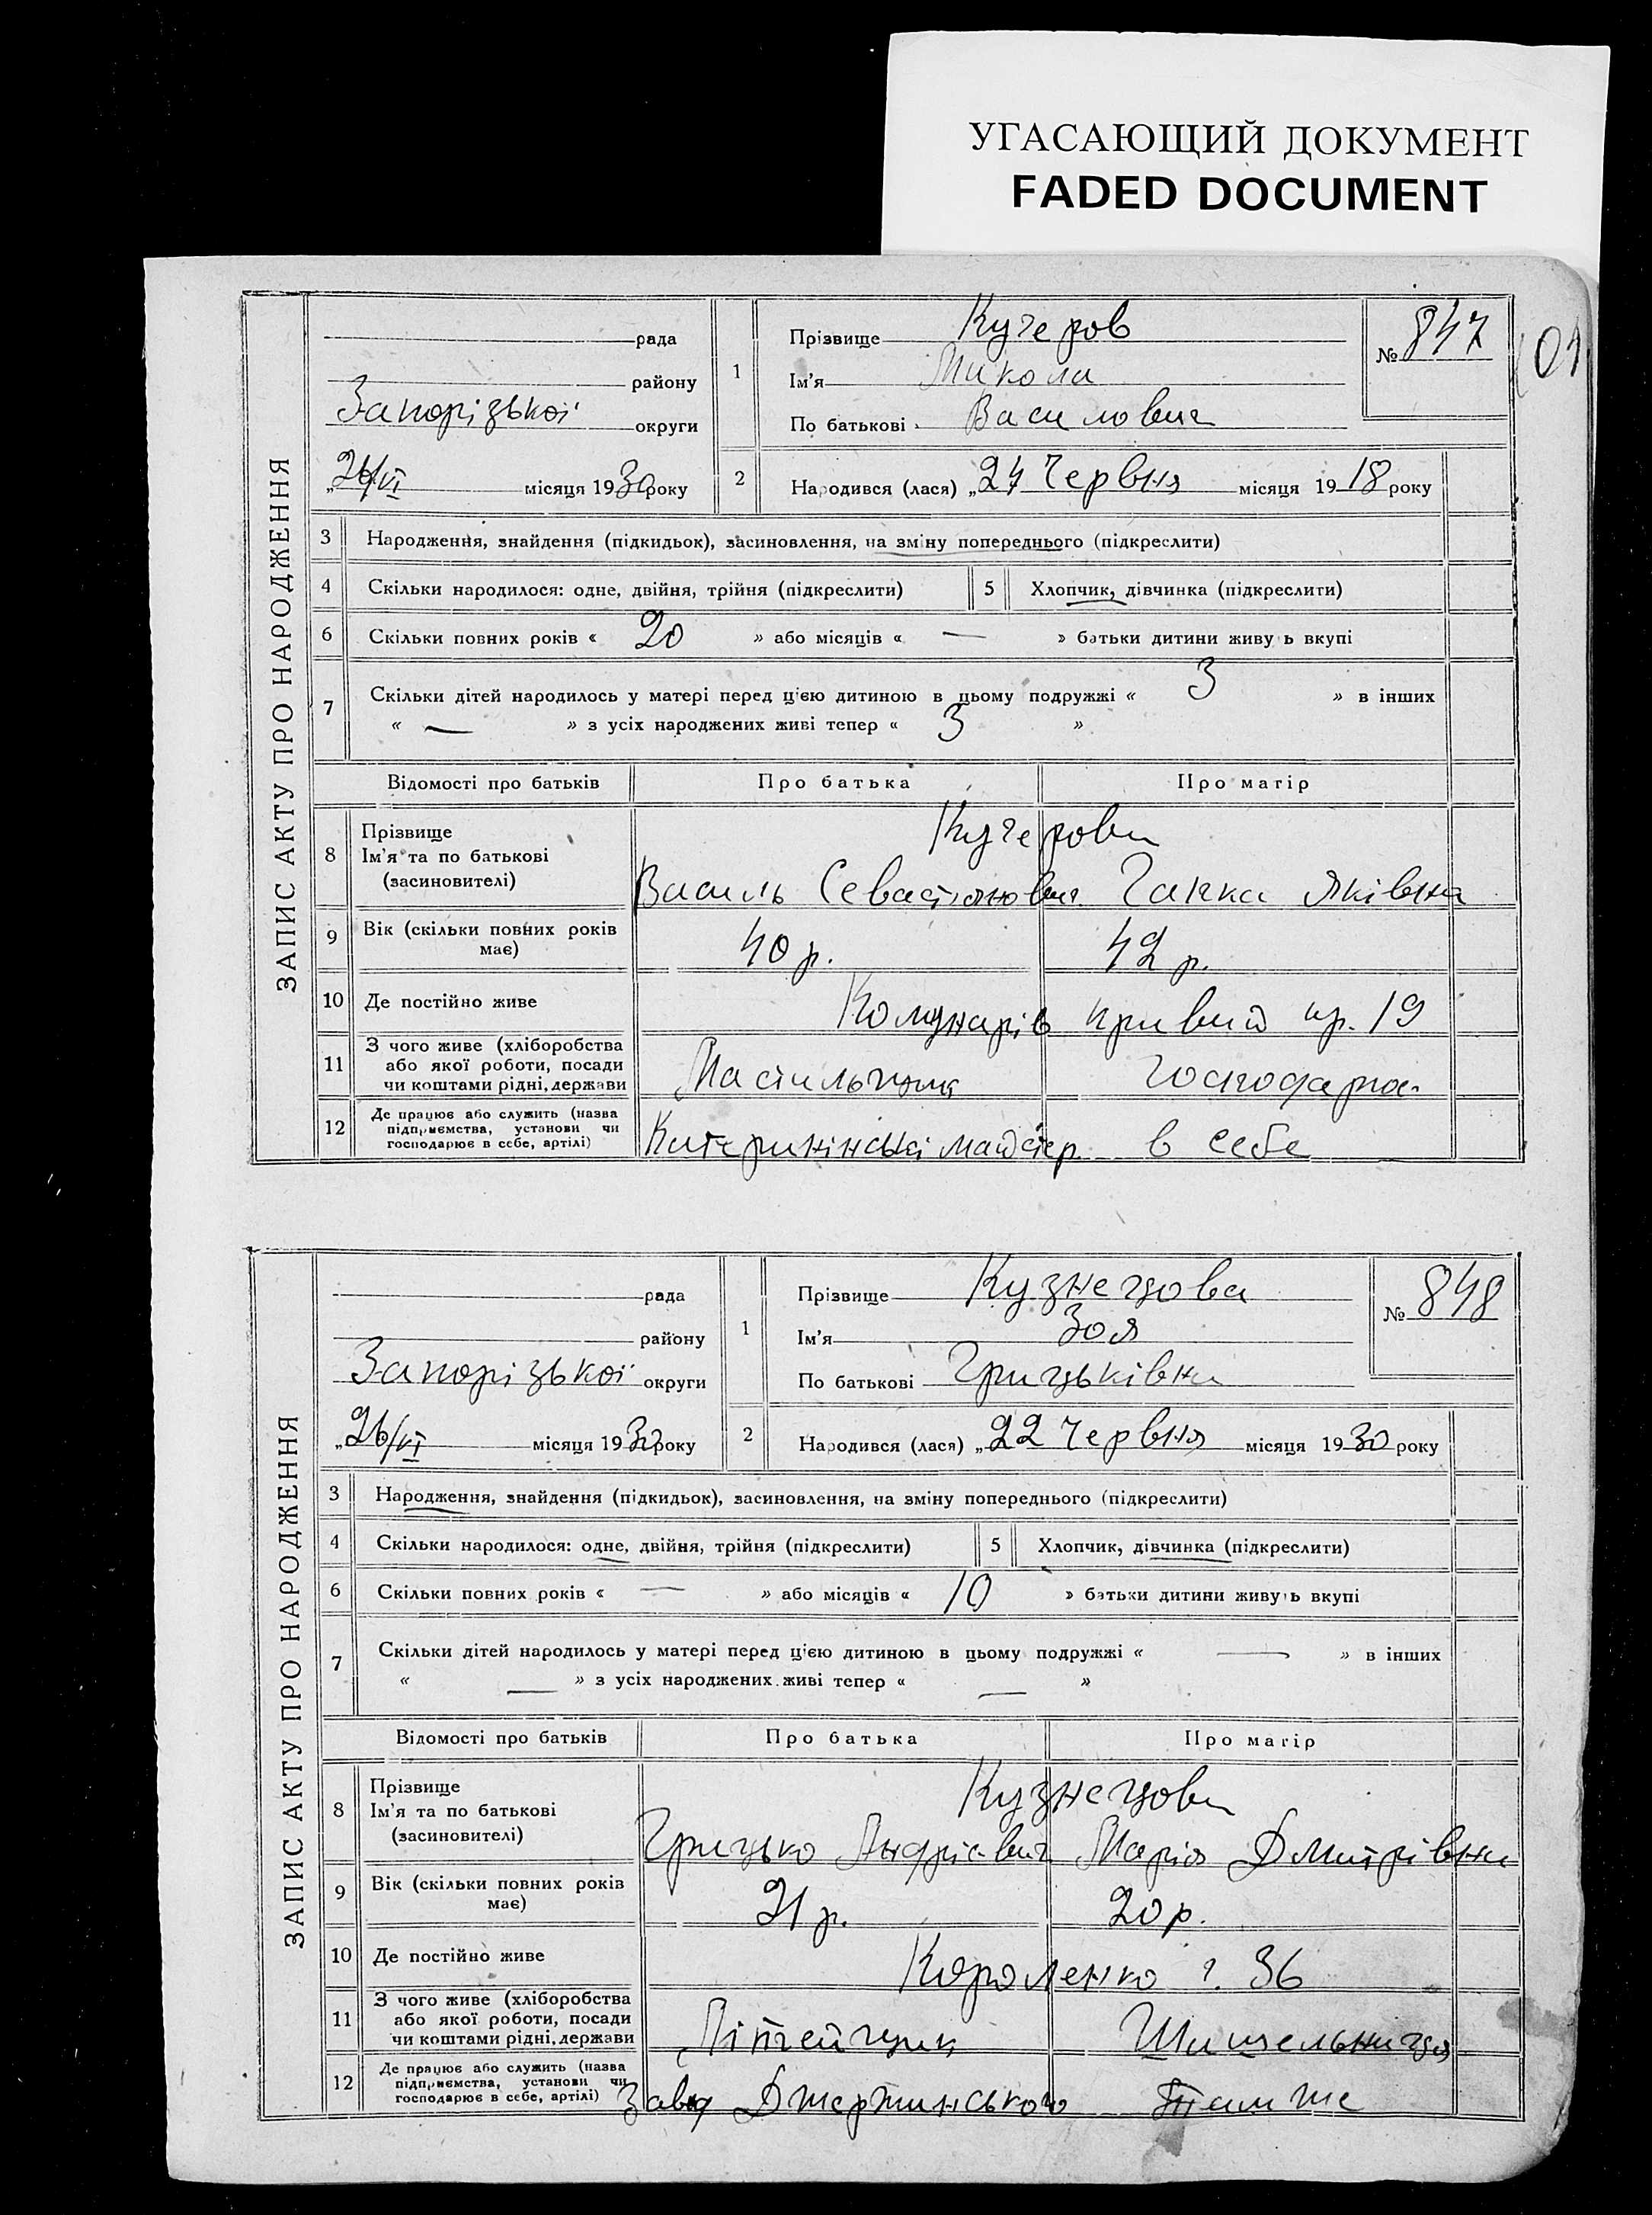 УГАСАЮЩИЙ ДОКУМЕНТ
FADED DOCUMENT
ЗАПИС АКТУ ПРО НАРОДЖЕННЯ
рада
району
Запорізької округи
„26/VI місяця 1930 року
1 Прізвище Кучеров
Ім'я Микола
По батькові Василович
№ 847
101
2 Народився (лася) „24 Червня місяця 1918 року
3 Народження, знайдення (підкидьок), засиновлення, на зміну попереднього (підкреслити)
4 Скільки народилося: одне, двійня, трійня (підкреслити) 5 Хлопчик, дівчинка (підкреслити)
6 Скільки повних років « 20 » або місяців « — » батьки дитини живуть вкупі
7 Скільки дітей народилось у матері перед цією дитиною в цьому подружжі « 3 » в інших
« — » з усіх народжених живі тепер « 3 »
Відомості про батьків Про батька Про матір
8 Прізвище Кучерови
Ім'я та по батькові
(засиновителі) Василь Севастянович Ганка Яківна
9 Вік (скільки повних років має) 40 р. 42 р.
10 Де постійно живе Комунарів кривий пр. 19
11 З чого живе (хліборобства
або якої роботи, посади
чи коштами рідні, держави Мастильщик господарка
12 Де працює або служить (назва
підприємства, установи чи
господарює в себе, артілі) Катеринінські майстер. в себе
ЗАПИС АКТУ ПРО НАРОДЖЕННЯ
рада
району
Запорізької округи
„26/VI місяця 1930 року
1 Прізвище Кузнецова
Ім'я Зоя
По батькові Грицьківна
№ 848
2 Народився (лася) „22 Червня місяця 1930 року
3 Народження, знайдення (підкидьок), засиновлення, на зміну попереднього (підкреслити)
4 Скільки народилося: одне, двійня, трійня (підкреслити) 5 Хлопчик, дівчинка (підкреслити)
6 Скільки повних років « — » або місяців « 10 » батьки дитини живуть вкупі
7 Скільки дітей народилось у матері перед цією дитиною в цьому подружжі « — » в інших
« — » з усіх народжених живі тепер « — »
Відомості про батьків Про батька Про матір
8 Прізвище Кузнецови
Ім'я та по батькові
(засиновителі) Грицько Андрієвич Марія Дмитрівна
9 Вік (скільки повних років має) 21 р. 20 р.
10 Де постійно живе Короленко г. 36
11 З чого живе (хліборобства
або якої роботи, посади
чи коштами рідні, держави Літейщик Шишельниця
12 Де працює або служить (назва
підприємства, установи чи
господарює в себе, артілі) Завод Джержинського там же